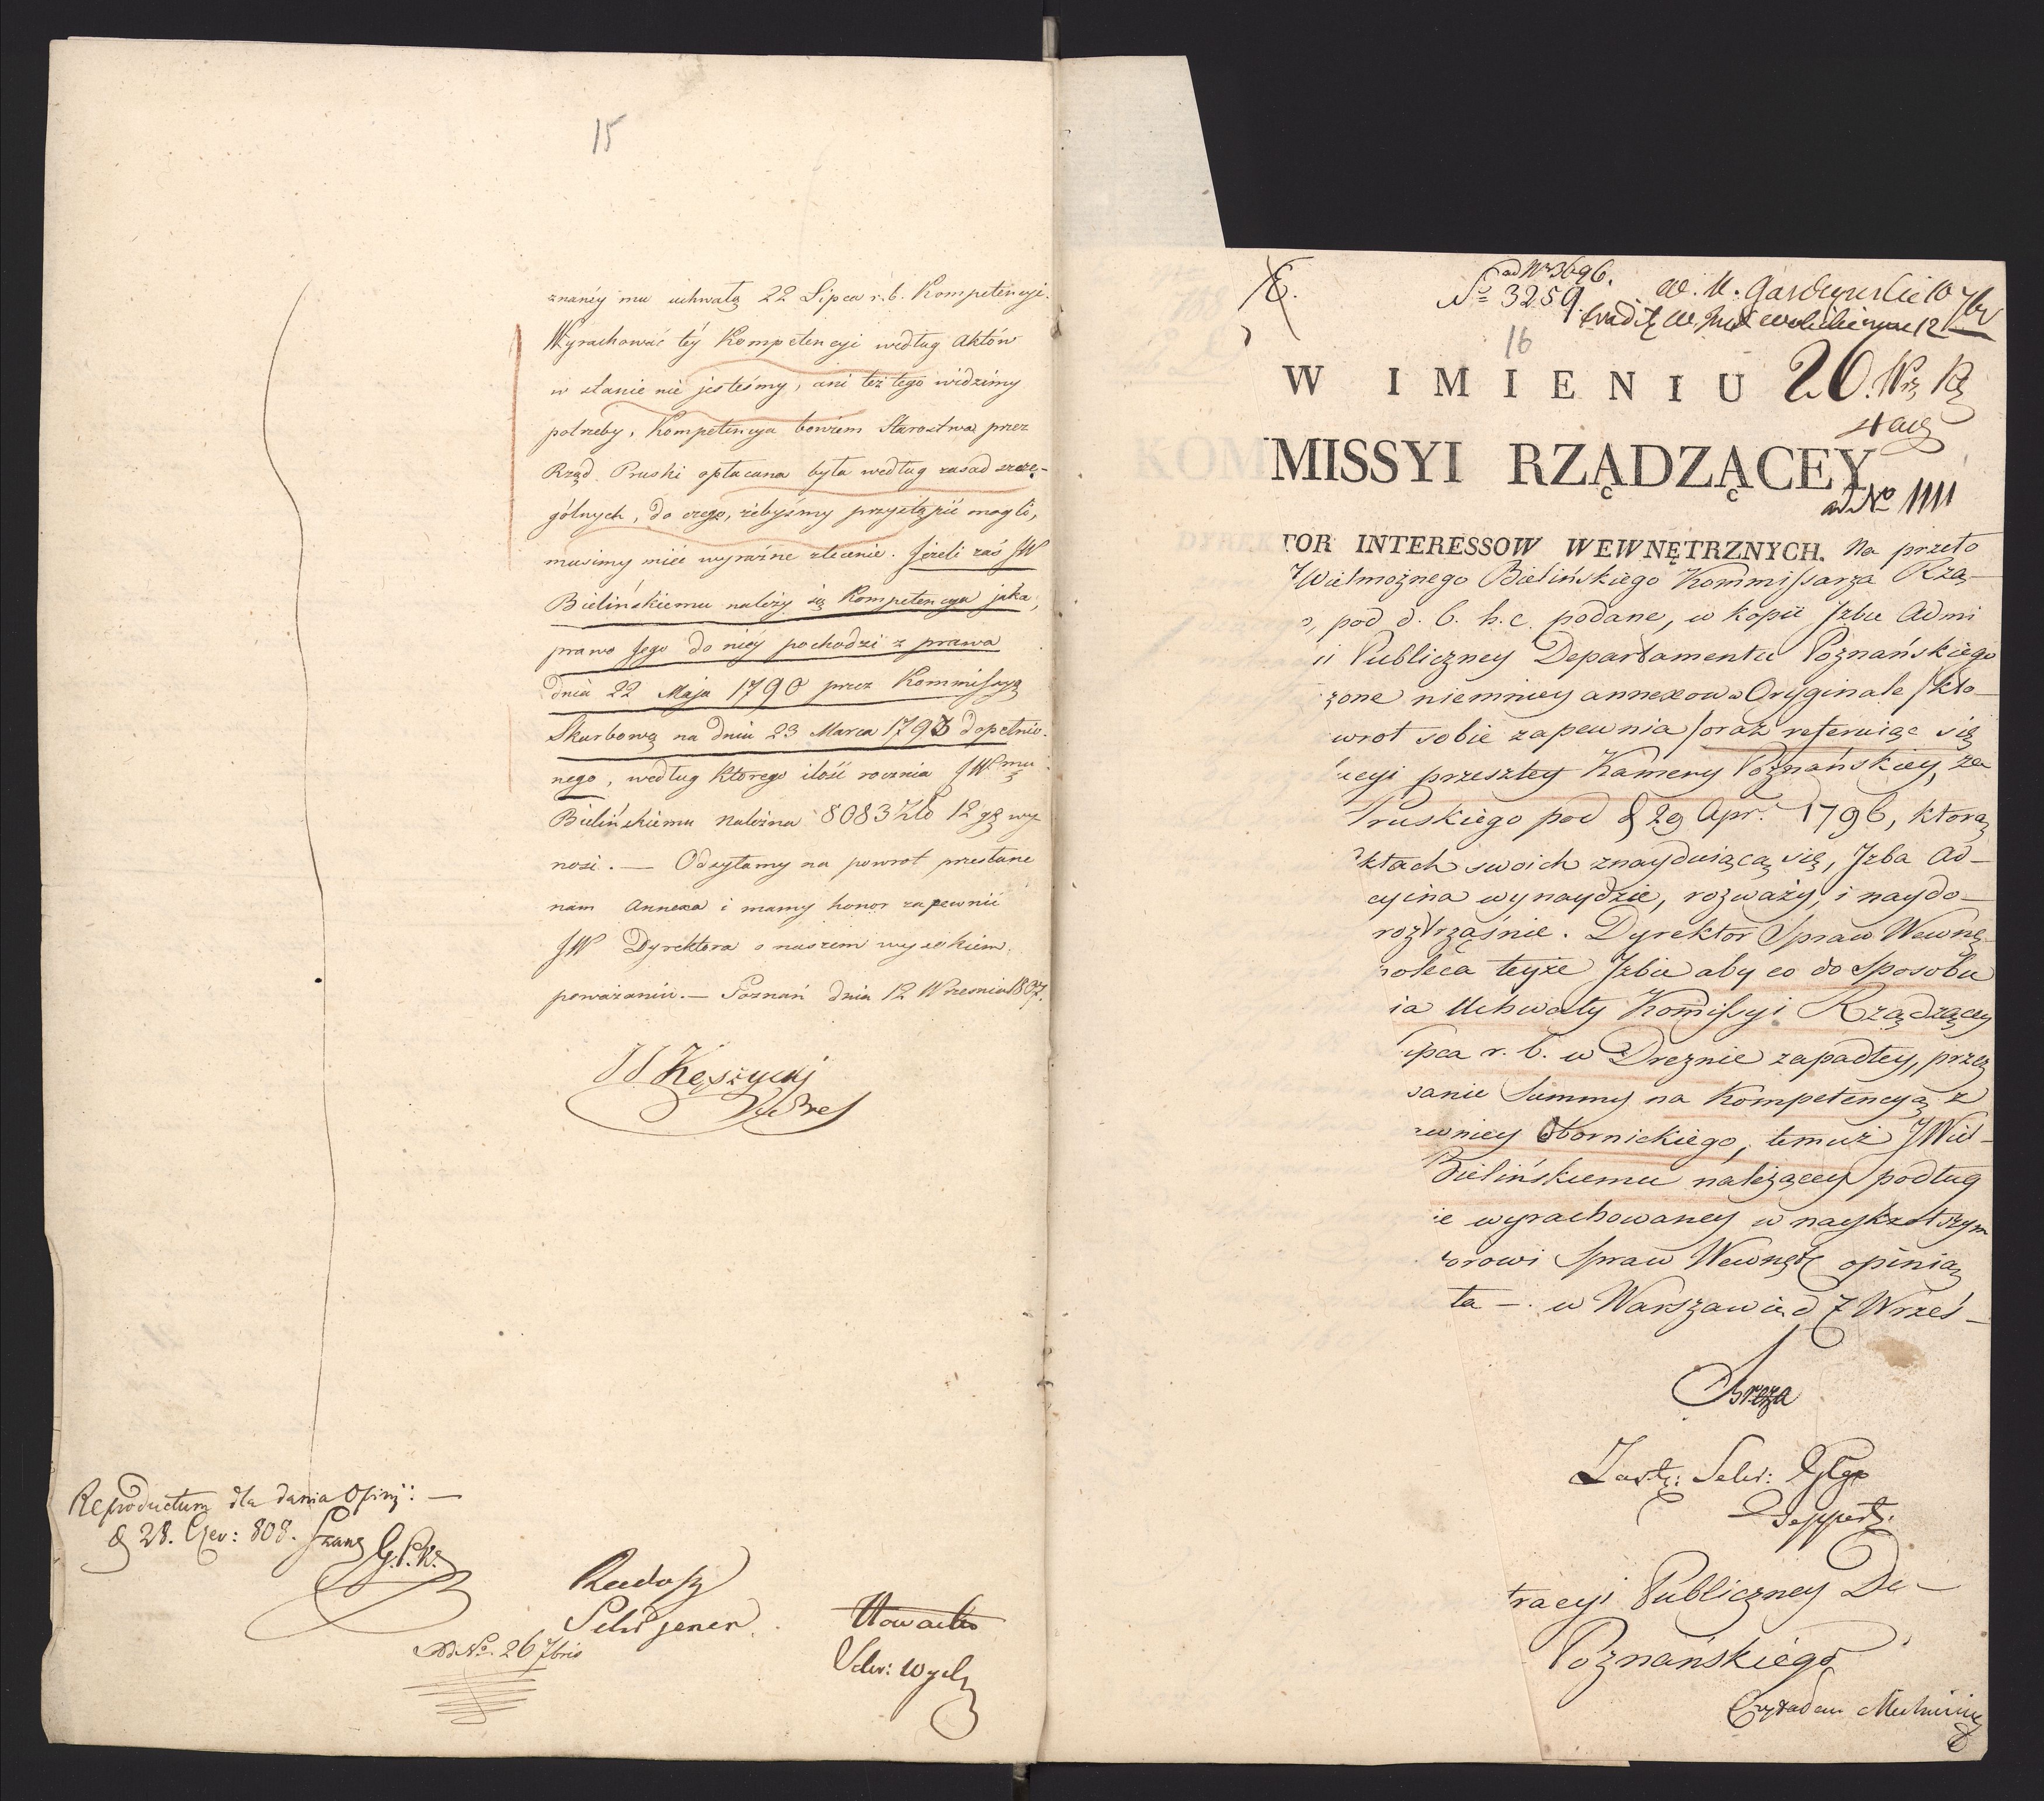 15
znanéy mu uchwałą 22 Lipca r. b. Kompetencyi.
Wyrachować téy Kompetencyi według Aktów
w stanie nie jesteśmy, ani też tego widzimy
potrzeby, Kompetencya bowiem Starostwa przez
Rząd Pruski opłacana była według zasad szcze-
gólnych, do czego, żebyśmy przystąpić mogli,
musimy mieć wyraźne zlecenie. Jeżeli zaś JW
Bielińskiemu należy się Kompetencya jaka,
prawo Jego do niéy pochodzi z prawa
dnia 22 Maja 1790 przez Kommissyą
Skarbową na dniu 23 Marca 1793 dopełnio-
nego, według którego ilość rocznia JWmu
Bielińskiemu należna 8083 Zło 12 gę wy
nosi. — Odsyłamy na powrót przesłane
nam Annexa i mamy honor zapewnić
JW Dyrektora o naszem wysokiem
poważaniu. — Poznań dnia 12 Wrzesnia 1807.
Reproductum dla dania Opinij: —
d 28. Czer: 808.
G.P.K.
Sekr jener.
ad No. 26 7bris
Sekr: Wydz
E.
ad Nr 3696.
No 3259.
16
W IMIENIU
20.
KOMMISSYI RZĄDZĄCEY
ad No 1111
TOR INTERESSOW WEWNĘTRZNYCH. Na przeło
Wielmożnego Bielińskiego Kommissarza Rzą-
, pod d. 6. h. c. podane, w kopii Izbie Admi
ii Publiczney Departamentu Poznańskiego
zone niemniey annexowa Oryginale /kto-
wrot sobie zapewnia/ oraz referuiąc się
ucyi przeszłey Kamery Poznańskiey, za
Pruskiego pod d 29 Apr. 1796, ktorą
ktach swoich znayduiącą się, Izba Ad-
cyina wynaydzie, rozważy, i naydo-
roztrząśnie. Dyrektor Spraw Wewnę-
oleca teyże Izbie aby co do Sposobu
ia Uchwały Kommissyi Rządzącey
ipca r. b. w Dreznie zapadłey, przez
sanie Summy na Kompetencyą z
wnicy Obornickiego, temuż JWiel-
Bielińskiemu należącey podług
ie wyrachowaney w naykrotszym
orowi Spraw Wewnętr opinią
ta —. w Warszawie d 7 Wrześ-
Breza
Zastę: Sekr:
tracyi Publiczney De-
Poznańskiego